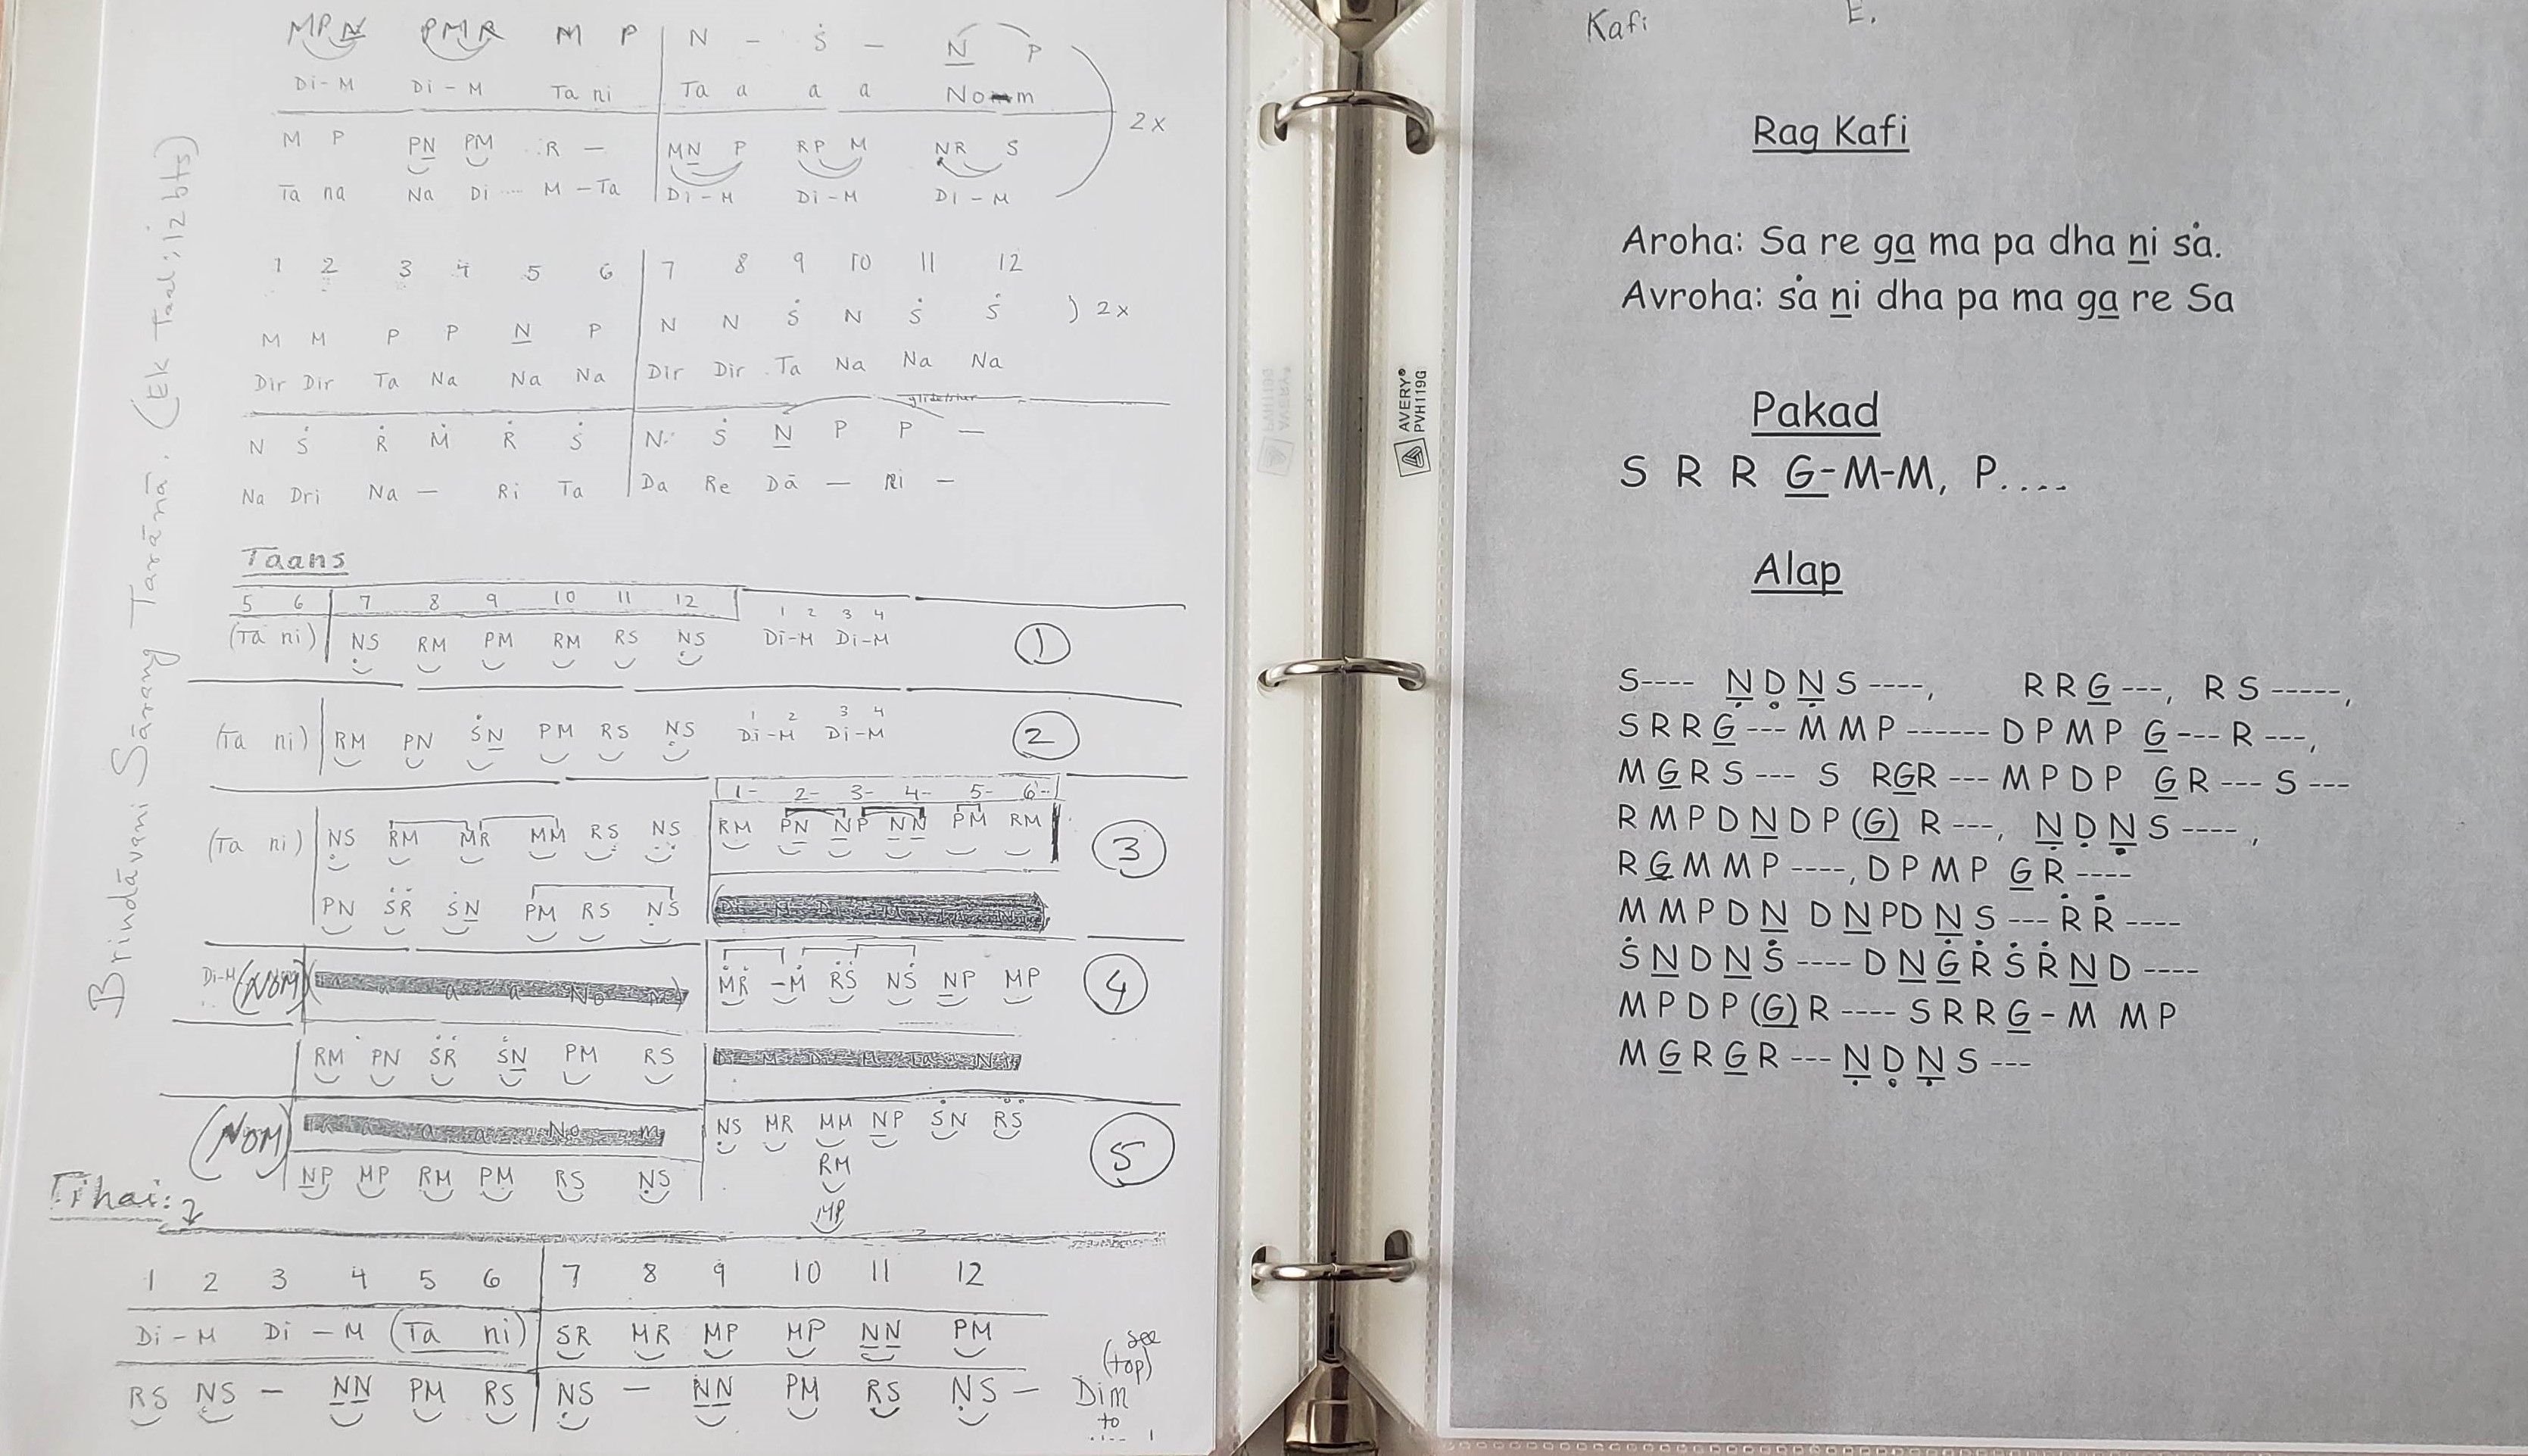 Brindāvani Sārang Tarānā. (Ek Taal; 12 bts)
MPN̲ PMR M P | N – Ṡ – N̲ P
Di-M Di-M Ta ni | Ta a a a Nom
2x
M P PN̲ PM R – | MN̲ P RP M ṆR S
Ta na Na Di .... M – Ta | Di-M Di-M Di-M
1 2 3 4 5 6 | 7 8 9 10 11 12
M M P P N̲ P | N N Ṡ N Ṡ Ṡ ) 2x
Dir Dir Ta Na Na Na | Dir Dir Ta Na Na Na
N Ṡ Ṙ Ṁ Ṙ Ṡ | N Ṡ N̲ P P –
Na Dri Na – Ri Ta | Da Re Dā – Ri –
Taans
5 6 | 7 8 9 10 11 12 1 2 3 4
(Ta ni) | ṆS RM PM RM RS ṆS Di-M Di-M 1
1 2 3 4
(Ta ni) | RM PN ṠN̲ PM RS ṆS Di-M Di-M 2
1- 2- 3- 4- 5- 6-
(Ta ni) | ṆS RM MR MM RS ṆS | RM PN̲ N̲P N̲N̲ PM RM | 3
PN ṠṘ ṠN̲ PM RS ṆS
Di-M (NOM) | ṀṘ -Ṁ ṘṠ NṠ N̲P MP 4
RM PN ṠṘ ṠN̲ PM RS
(NOM) | ṆS MR MM N̲P ṠN ṘṠ 5
RM
N̲P MP RM PM RS ṆS
MP
Tihai:
1 2 3 4 5 6 | 7 8 9 10 11 12
Di-M Di-M (Ta ni) | SR MR MP MP N̲N̲ PM
see
(top)
RS ṆS – N̲N̲ PM RS | ṆS – N̲N̲ PM RS ṆS – Dim
to
AVERY®
PVH119G
Kafi E.
Rag Kafi
Aroha: Sa re ga̲ ma pa dha n̲i ṡa.
Avroha: ṡa n̲i dha pa ma ga̲ re Sa
Pakad
S R R G̲-M-M, P....
Alap
S---- Ṇ̲ Ḍ Ṇ̲ S ----, R R G̲ ---, R S -----,
S R R G̲ --- M M P ------ D P M P G̲ --- R ---,
M G̲ R S --- S R G̲ R --- M P D P G̲ R --- S ---
R M P D N̲ D P (G̲) R ---, Ṇ̲ Ḍ Ṇ̲ S ---- ,
R G̲ M M P ----, D P M P G̲ R ----
M M P D N̲ D N̲ P D N̲ S --- Ṙ Ṙ ----
Ṡ N̲ D N̲ Ṡ ---- D N̲ Ġ̲ Ṙ Ṡ Ṙ N̲ D ----
M P D P (G̲) R ---- S R R G̲ - M M P
M G̲ R G̲ R --- Ṇ̲ Ḍ Ṇ̲ S ---